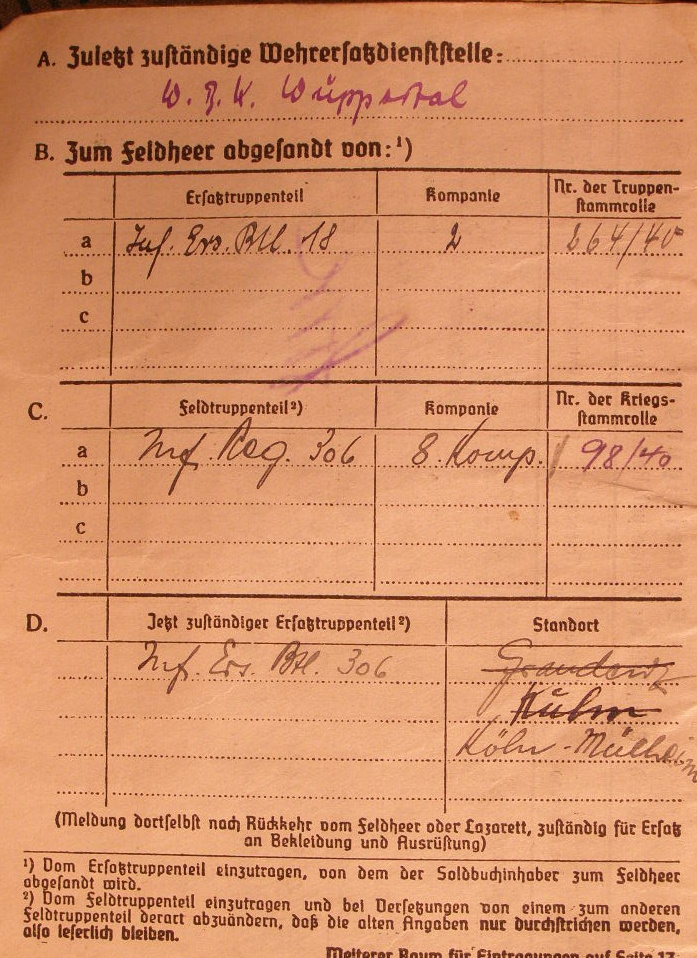 A. Zuletzt zuständige Wehrersatzdienststelle:
W. B. K. Wuppertal
B. Zum Feldheer abgesandt von:¹)
Ersatztruppenteil Kompanie Nr. der Truppen-
stammrolle
a Inf. Ers. Btl. 18 2 264/40
b
c
C. Feldtruppenteil²) Kompanie Nr. der Kriegs-
stammrolle
a Inf. Reg. 306 8. Komp. 98/40
b
c
D. Jetzt zuständiger Ersatztruppenteil²) Standort
Inf. Ers. Btl. 306 Graudenz
Kulm
Köln-Mülheim
(Meldung dortselbst nach Rückkehr vom Feldheer oder Lazarett, zuständig für Ersatz
an Bekleidung und Ausrüstung)
¹) Vom Ersatztruppenteil einzutragen, von dem der Soldbuchinhaber zum Feldheer
abgesandt wird.
²) Vom Feldtruppenteil einzutragen und bei Versetzungen von einem zum anderen
Feldtruppenteil derart abzuändern, daß die alten Angaben nur durchstrichen werden,
also leserlich bleiben.
Weiterer Raum für Eintragungen auf Seite 17.